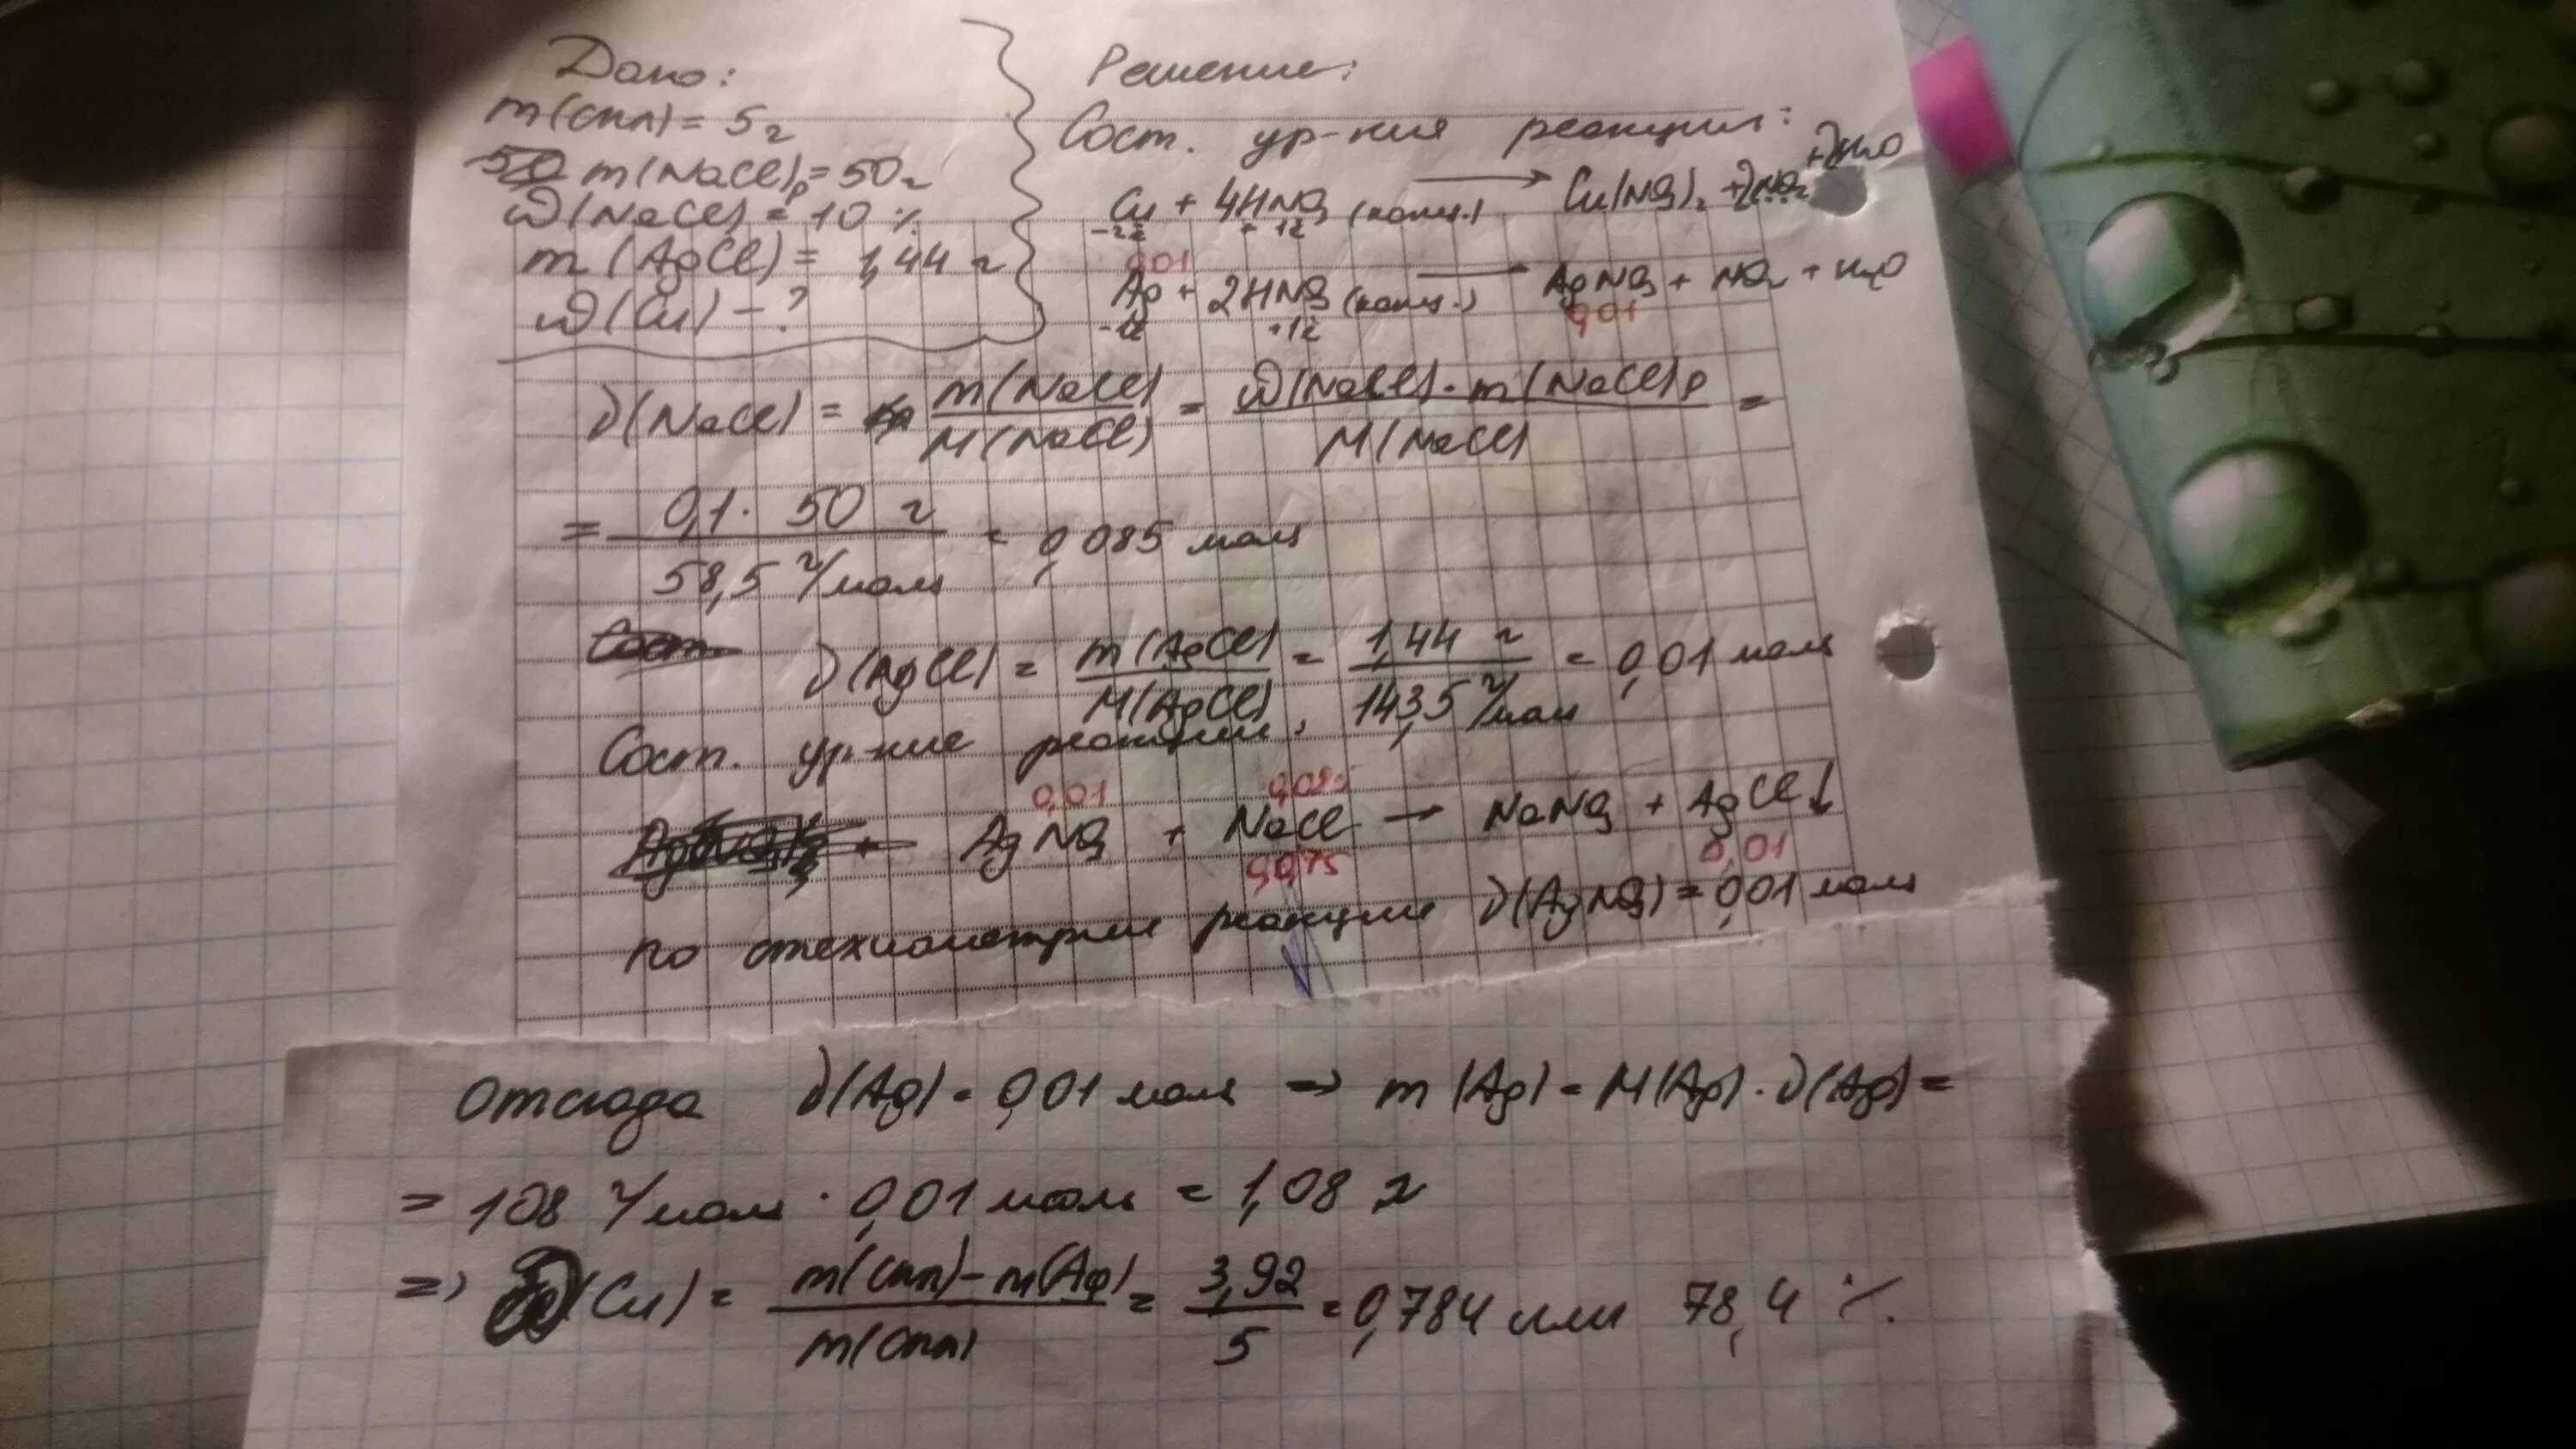 Дано:
m(спл) = 5 г
m(NaCl)р = 50 г
ω(NaCl) = 10 %
m(AgCl) = 1,44 г
ω(Cu) - ?
Решение:
Сост. ур-ния реакций:
Cu + 4HNO3 (конц.) → Cu(NO3)2 + 2NO2 + 2H2O
-2ē +1ē
0,01
Ag + 2HNO3 (конц.) → AgNO3 + NO2 + H2O
-1ē +1ē 0,01
ν(NaCl) = m(NaCl) / M(NaCl) = ω(NaCl) · m(NaCl)р / M(NaCl) =
= 0,1 · 50 г / 58,5 г/моль = 0,085 моль
ν(AgCl) = m(AgCl) / M(AgCl) = 1,44 г / 143,5 г/моль = 0,01 моль
Сост. ур-ние реакции:
0,01 0,085
AgNO3 + NaCl → NaNO3 + AgCl↓
0,075 0,01
по стехиометрии реакции ν(AgNO3) = 0,01 моль
Отсюда ν(Ag) = 0,01 моль ⇒ m(Ag) = M(Ag) · ν(Ag) =
= 108 г/моль · 0,01 моль = 1,08 г
⇒ ω(Cu) = m(спл) - m(Ag) / m(спл) = 3,92 / 5 = 0,784 или 78,4 %.